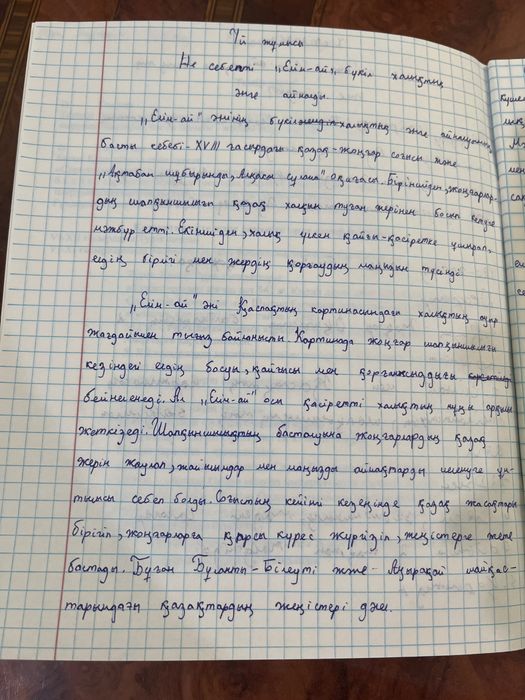 Үй жұмысы
Не себепті „Елім-ай" бүкіл халықтық
әнге айналды.
„Елім-ай" әнінің бүкілхалықтық әнге айналуының
басты себебі - XVIII ғасырдағы қазақ-жоңғар соғысы және
„Ақтабан шұбырынды, Алқакөл сұлама" оқиғасы. Біріншіден, жоңғарлар-
дың шапқыншылығы қазақ халқын туған жерінен босып кетуге
мәжбүр етті. Екіншіден, халық үлкен қайғы-қасіретке ұшырап,
елдің бірлігі мен жердің қорғаудың маңызын түсінді.
„Елім-ай" әні Қаспақтың картинасындағы халықтың ауыр
жағдайымен тығыз байланысты. Картинада жоңғар шапқыншылығы
кезіндегі елдің босуы, қайғысы мен қорғансыздығы
бейнеленеді. Ал „Елім-ай" осы қасіретті халықтың мұңы арқылы
жеткізеді. Шапқыншылықтың басталуына жоңғарлардың қазақ
жерін жаулап, жайылымдар мен маңызды аймақтарды иеленуге ұм-
тылысы себеп болды. Соғыстың кейінгі кезеңінде қазақ жасақтары
бірігіп, жоңғарларға қарсы күрес жүргізіп, жеңістерге жете
бастады. Бұған Бұланты-Білеуті және Аңырақай шайқас-
тарындағы қазақтардың жеңістері дәлел.